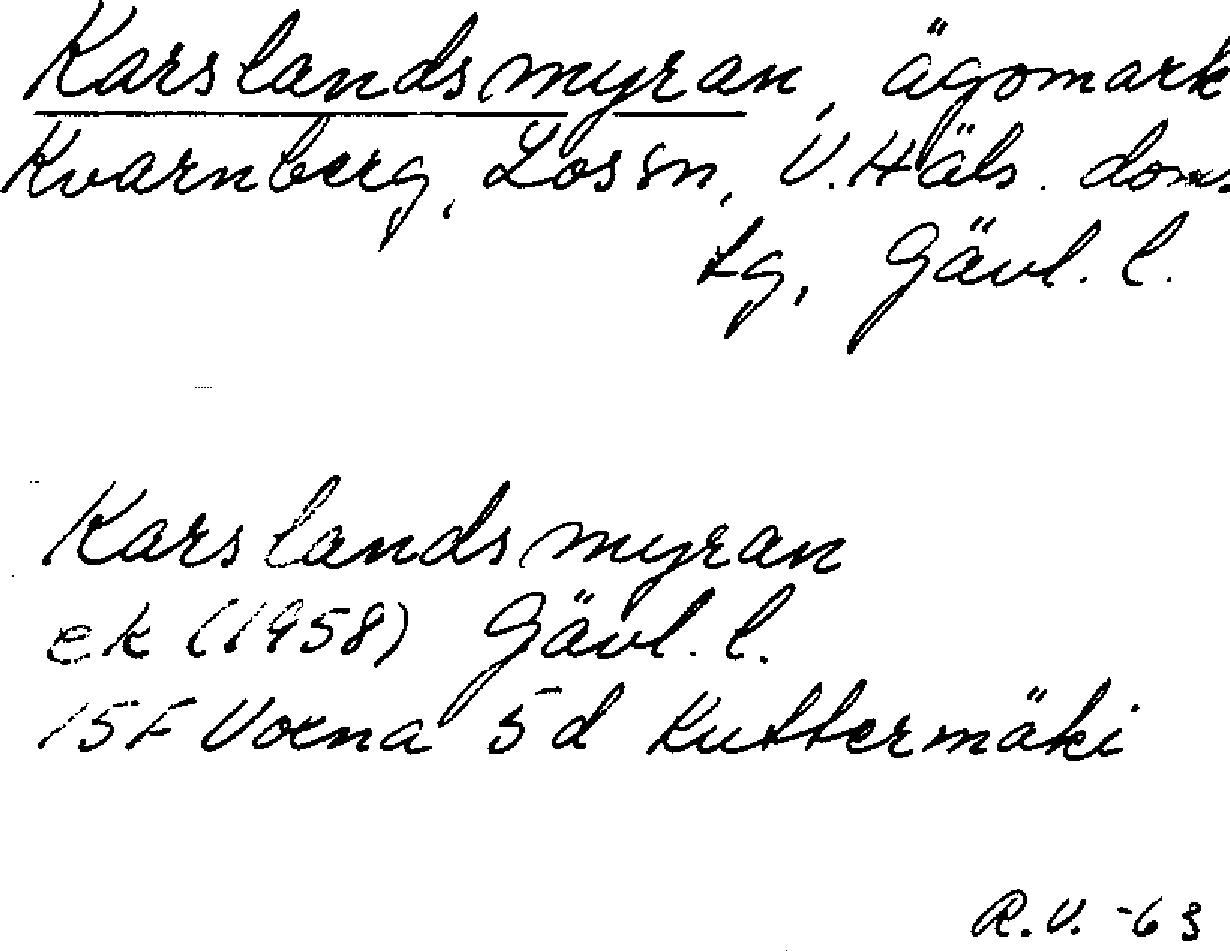 Karslandsmyran, ägomark
Kvarnberg, Los sn, V. Häls. doms
tg, Gävl. l.
Karslandsmyran
ek (1958) Gävl. l.
15F Voxna 5d Kuttermäki
R.V. -63